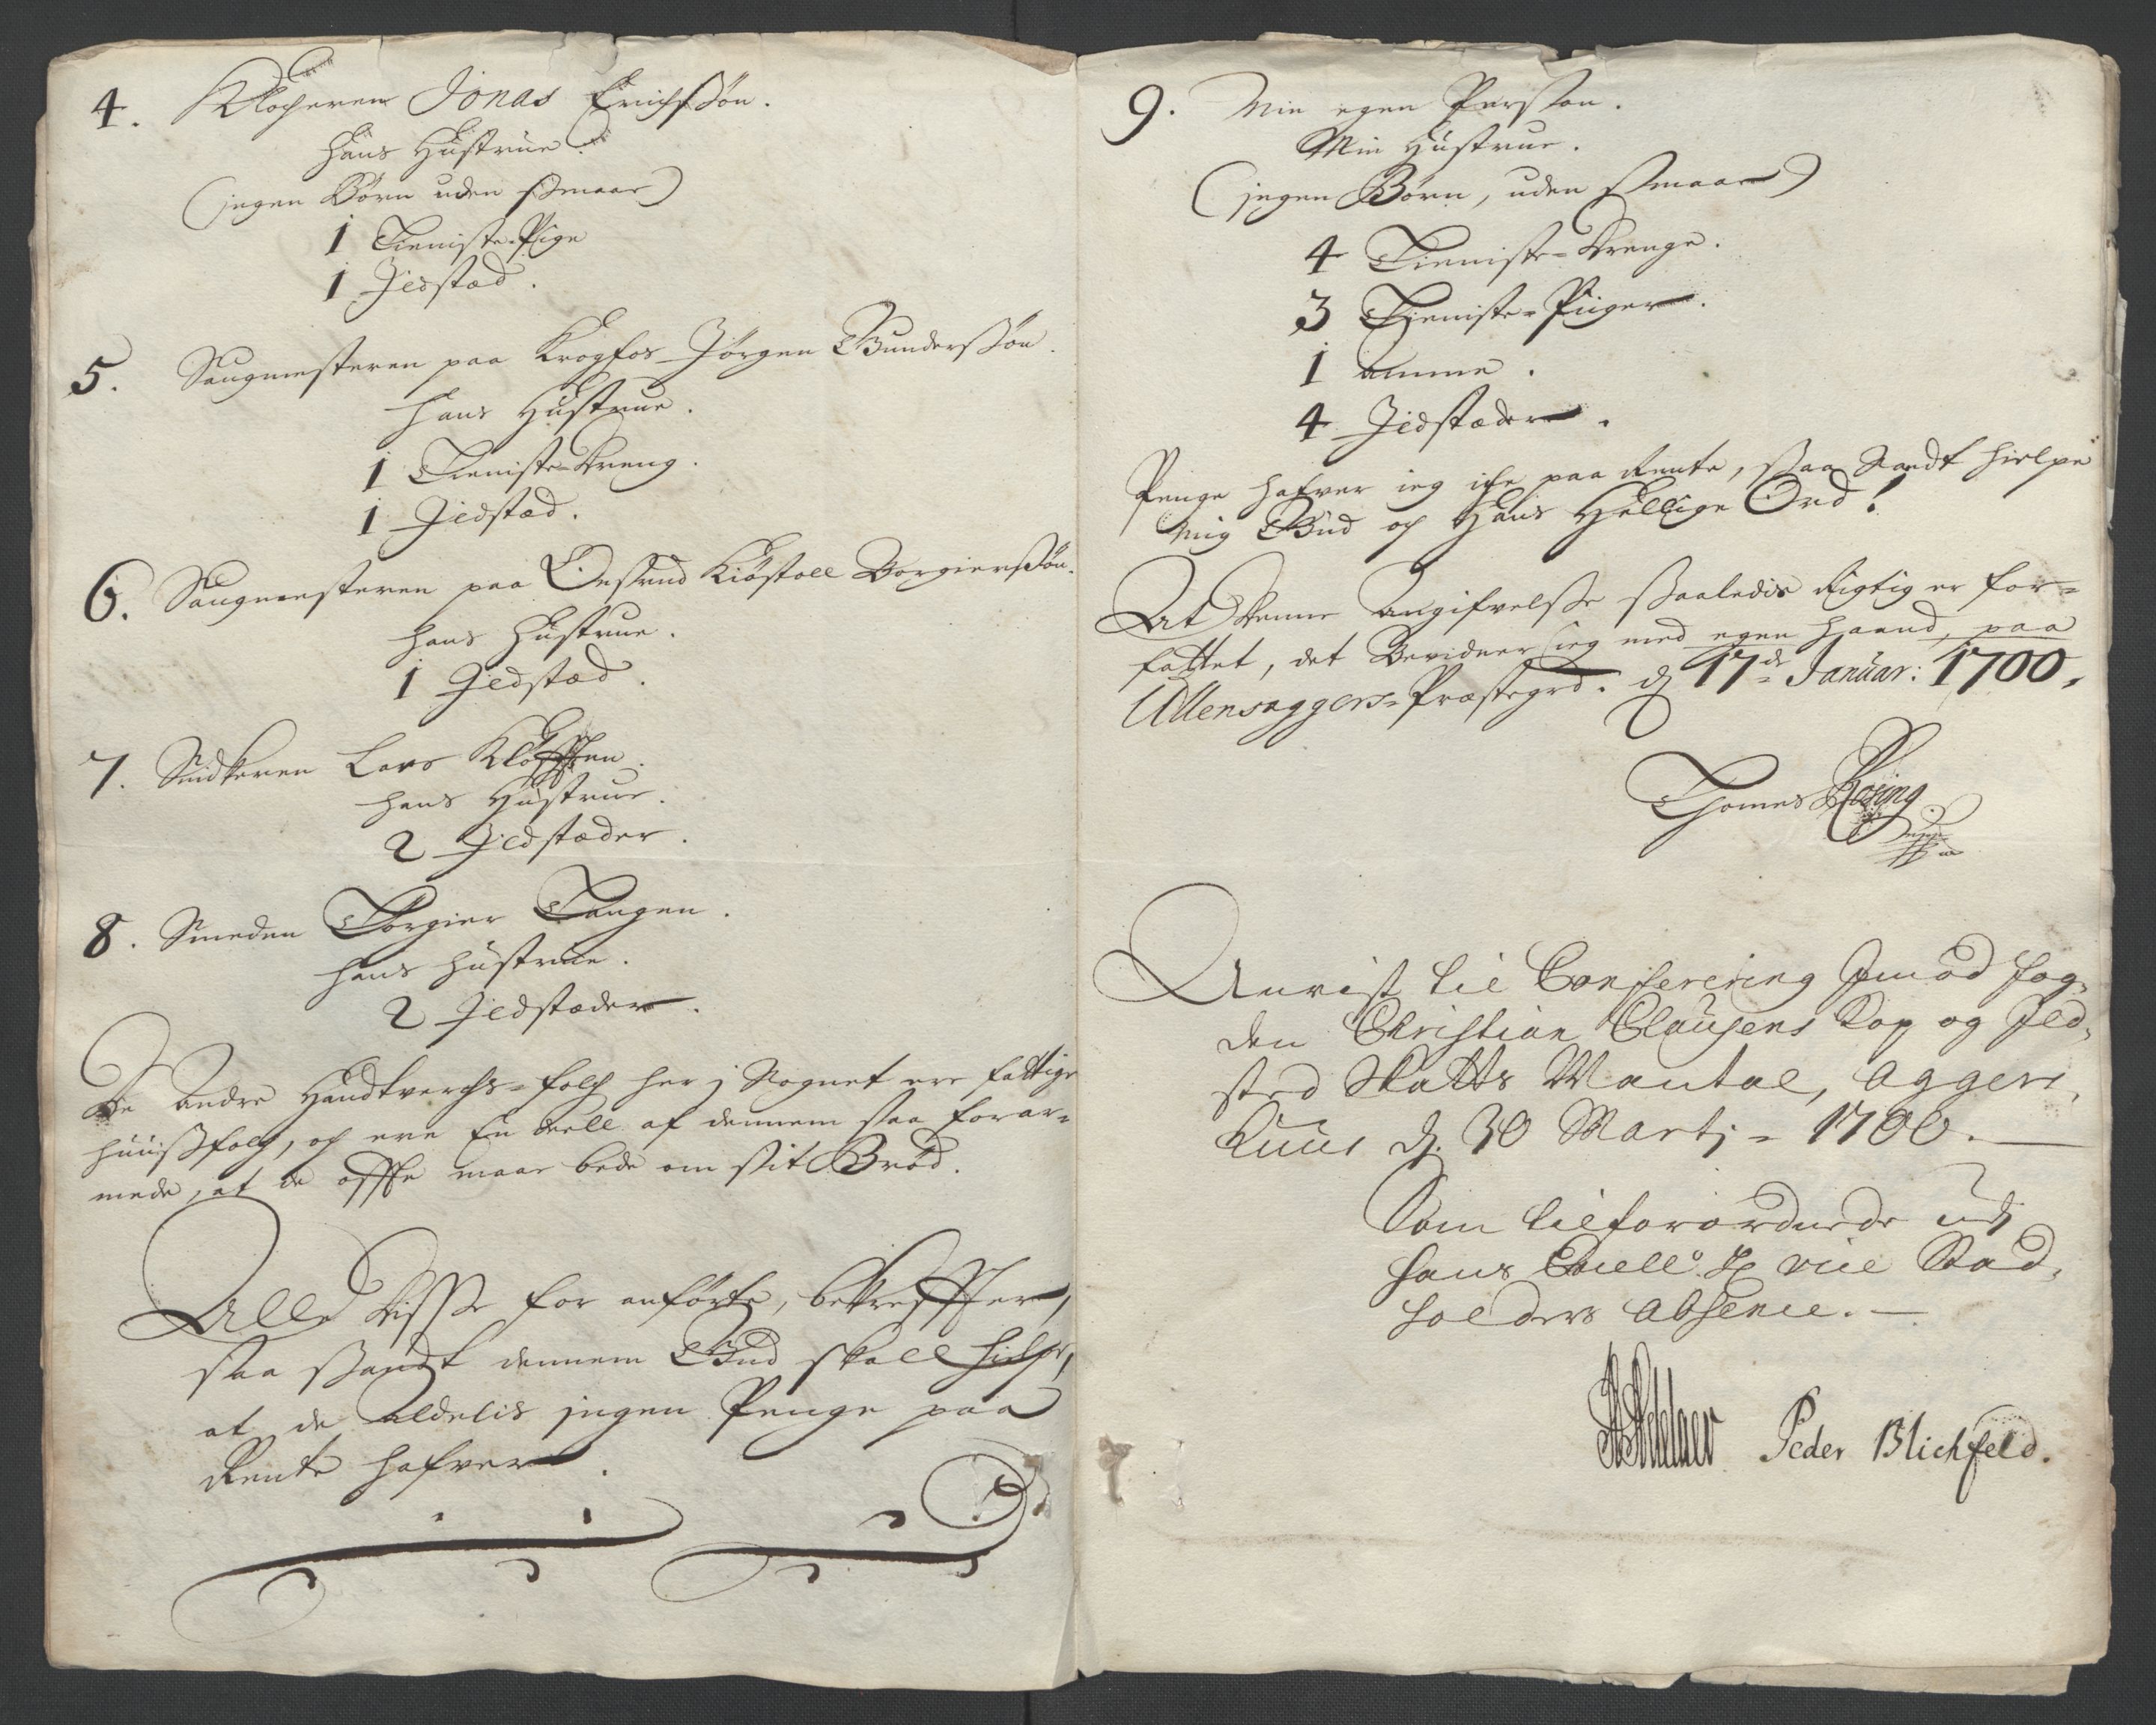 4. Klocheren Jonas Erichssøn.
Hans Hustrue.
(ingen Børn uden smaae)
1 Tieniste-Pige
1 Jldstæd.
5. Saugmesteren paa Krogfos Jørgen Gunderssøn.
Hans Hustrue.
1 Tieniste-Dreng.
1 Jldstæd.
6. Saugmesteren paa Kiøstoll Borgierssøn.
Hans Hustrue.
1 Jldstæd.
7. Snidkeren Lars
Hans Hustrue.
2 Jldstæder.
8. Smeden Torgier Tangen.
Hans Hustrue.
2 Jldstæder.
De andre Handtverchs-folch her j Sognet ere fattige
huusfolch, och ere En deell af dennem saa forar-
mede, at de offte maae bede om sit Brød.
Alle disse for anførte, bekreffter,
saa sandt dennem Gud skall hielpe,
at de aldelis ingen Penge paa
Rente hafver.
9. Min egen Person.
Min Hustrue.
(ingen Børn, uden smaae)
4 Tieniste-Drenge.
3 Tieniste-Piiger.
1 Amme.
4 Jldstæder.
Penge hafver ieg iche paa Rente, saa sandt hielpe
mig Gud og Hans Hellige Ord!
At denne Angifvelse saaledis Rigtig er for-
fattet, det Bevidner ieg med egen Haand, paa
Ullensaggers-Præstegrd. d 17de Januar: 1700.
Thomes Rosing
Anvist til Conferering Jmod fog-
den Christian Clausens Kop og Jld-
sted Skatts Mantal, Aggers-
huus d. 30 Martj - 1700.
Som tilforordnede udj
Hans Excell: Hr vice Stad-
holders Absence.
Peder Blichfeld.